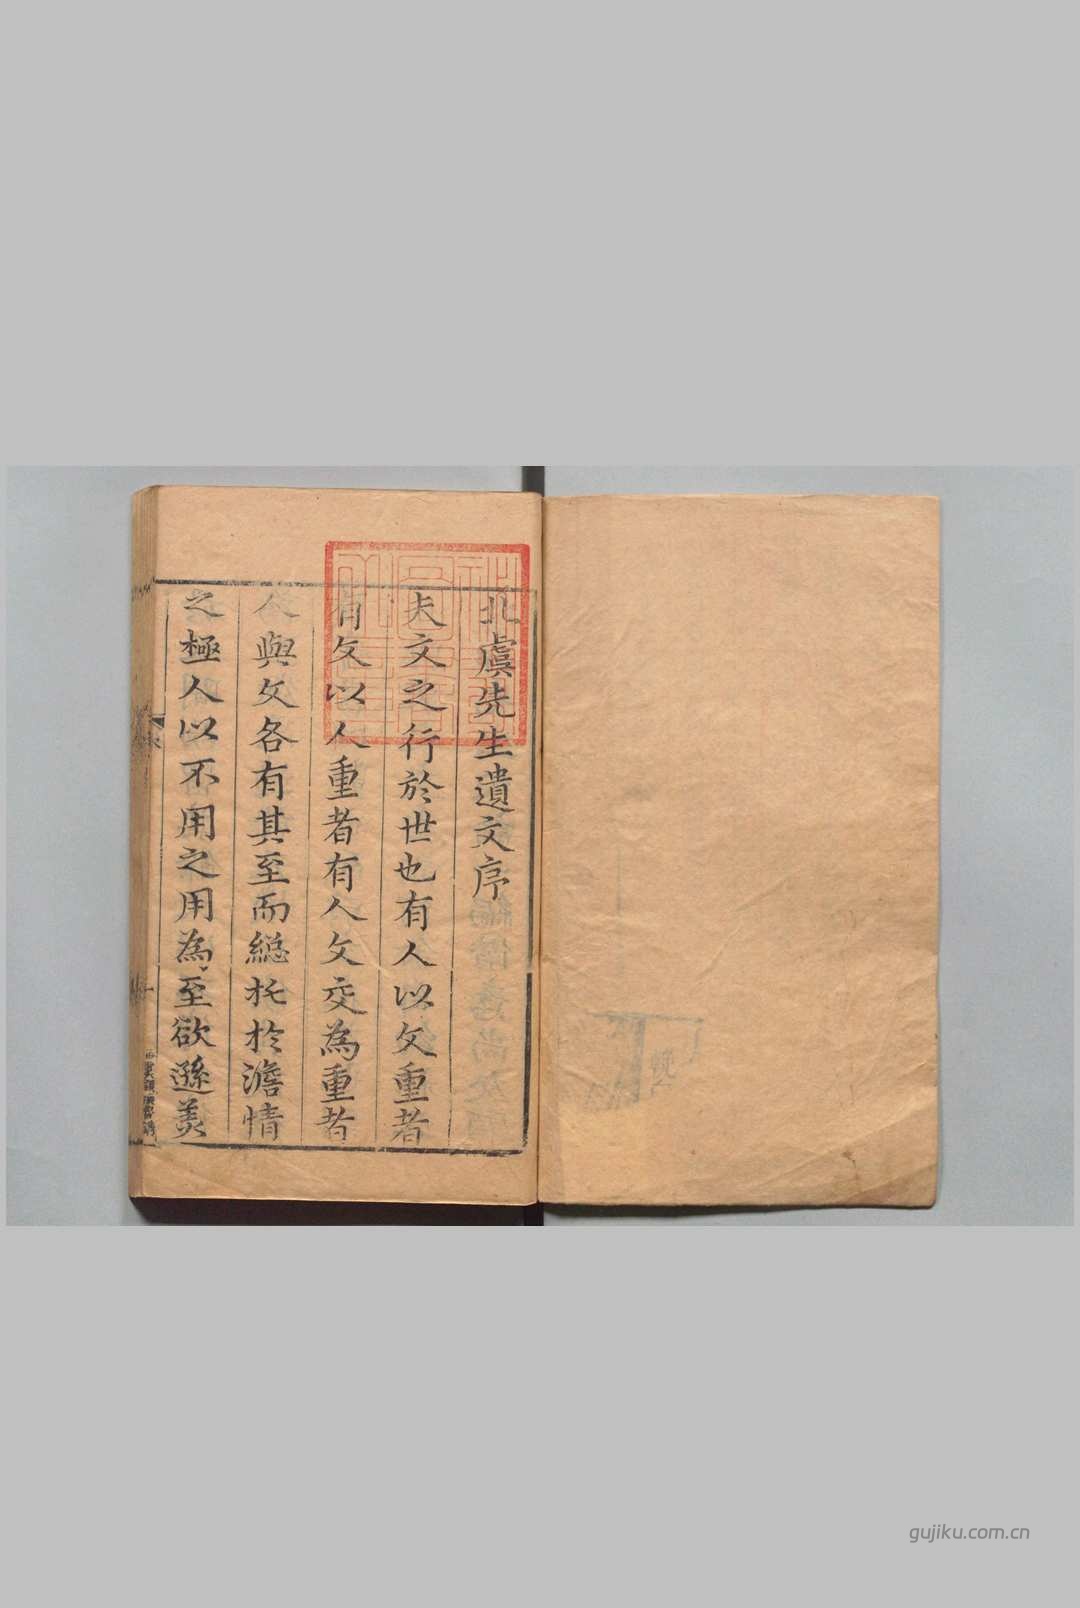 北虞先生遺文序
夫文之行於世也有人以文重者
有文以人重者有人文交為重者
人與文各有其至而総托於澹情
之極人以不用之用為至欲遜美
gujiku.com.cn